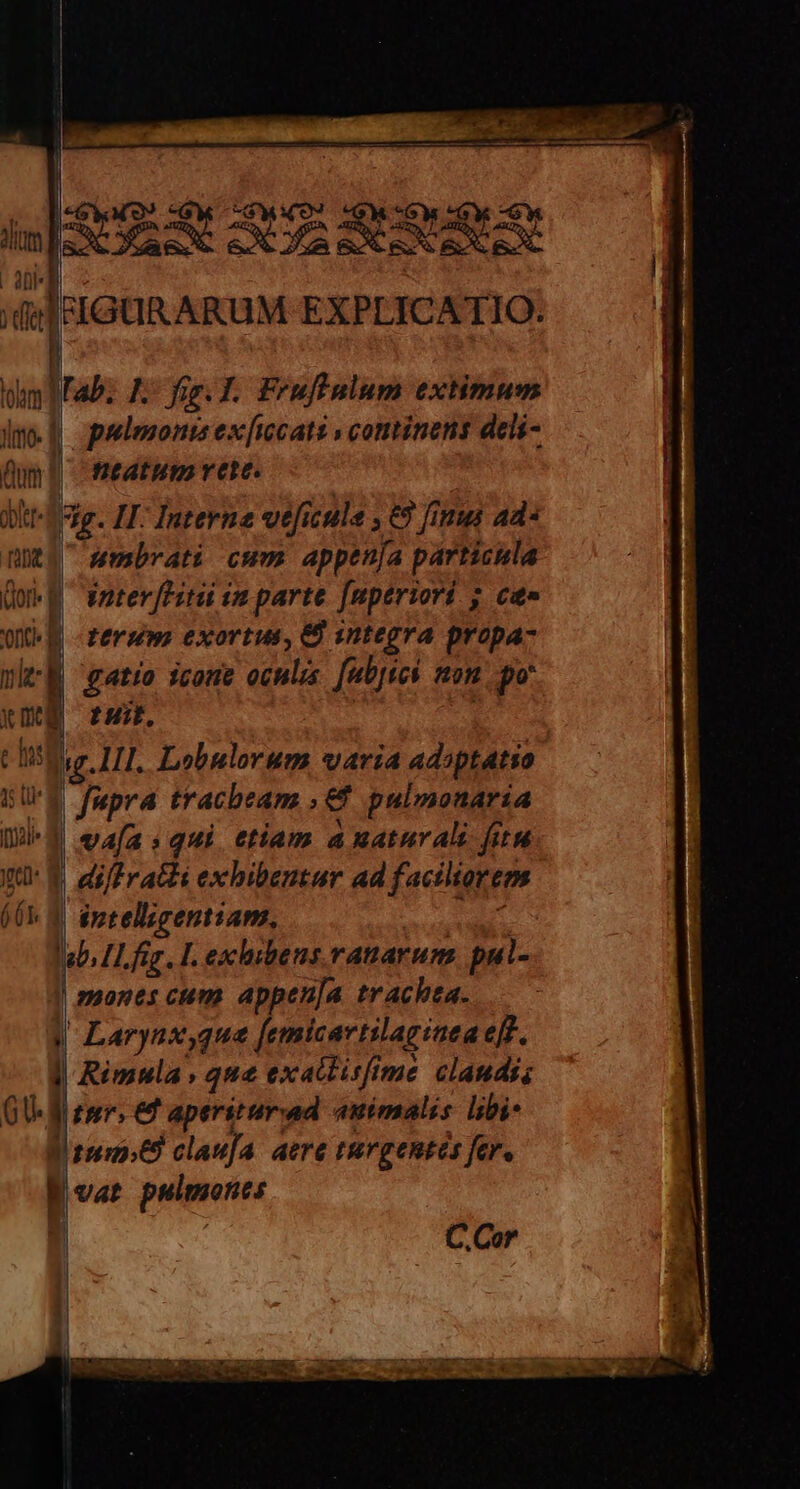 FIGURARUM EXPLICATIO.
Tab. I. fig. I. Fruſtulum extimum
pulmonis exſiccati, continens deli-
neatum rete.
Fig. II. Internæ veſiculæ, & ſinus ad-
umbrati cum appenſa particula
interſtitii in parte ſuperiori; cæ-
terum exortus, & integra propa-
gatio icone oculis ſubjici non po-
tuit.
Fig. III. Lobulorum varia adaptatio
ſupra tracheam, & pulmonaria
vaſa; qui etiam à naturali ſitu
diſtracti exhibentur ad faciliorem
intelligentiam.
Tab. II. fig. I. exhibens ranarum pul-
mones cum appenſa trachea.
Larynx, quæ ſemicartilaginea eſt.
Rimula, quæ exactiſſimè claudi-
tur, & aperitur ad animalis libi-
tum, & clauſa aere turgentes ſer-
vat pulmones
C. Cor